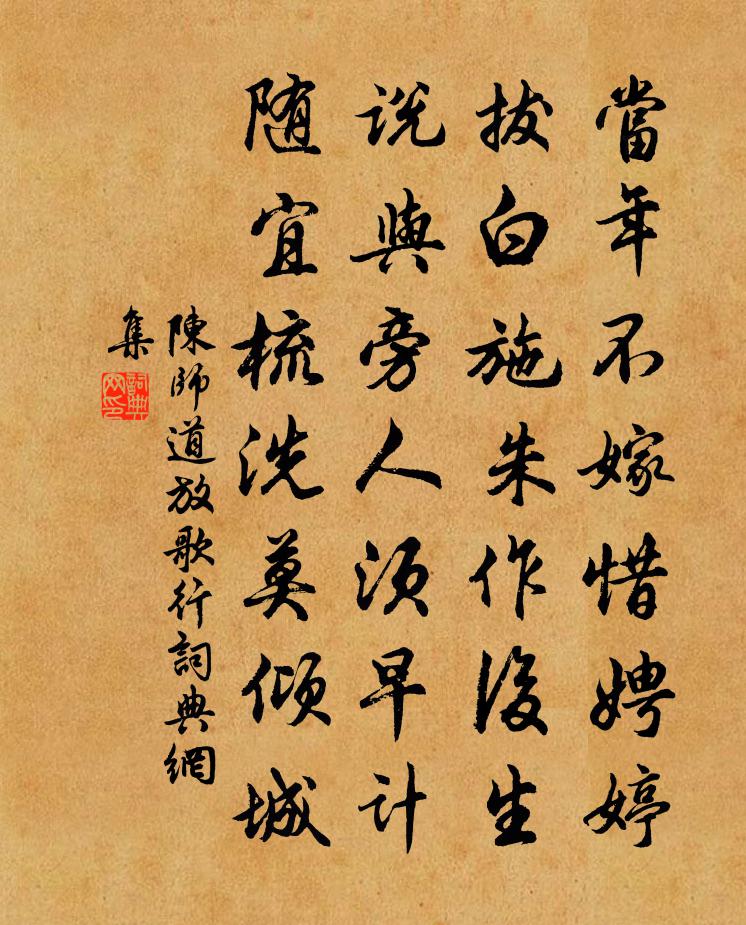 當年不嫁惜娉婷
拔白施朱作後生
說與旁人須早計
随宜梳洗莫傾城
陳師道放歌行詞典網
集
詞典
网印